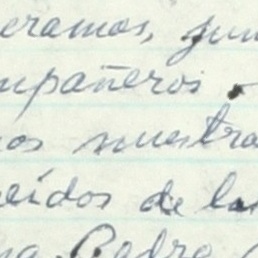 eramos, jun
mpañeros.
os nuestra
eidos de la
na Pedro